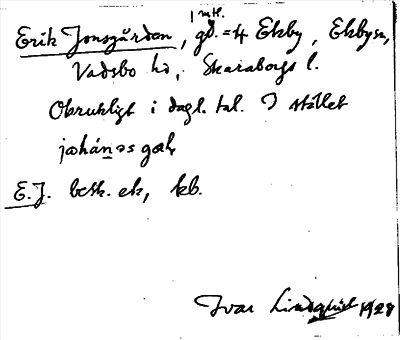 Erik Jonsgården, 1 mtl. gd. = 4 Ekby, Ekbysn,
Vadsbo hd, Skaraborgs l.
Obrukligt i dagl. tal. I stället
johánəs gɑɽ
E.J. besk. ek, kb.
Ivar Lindquist 1928